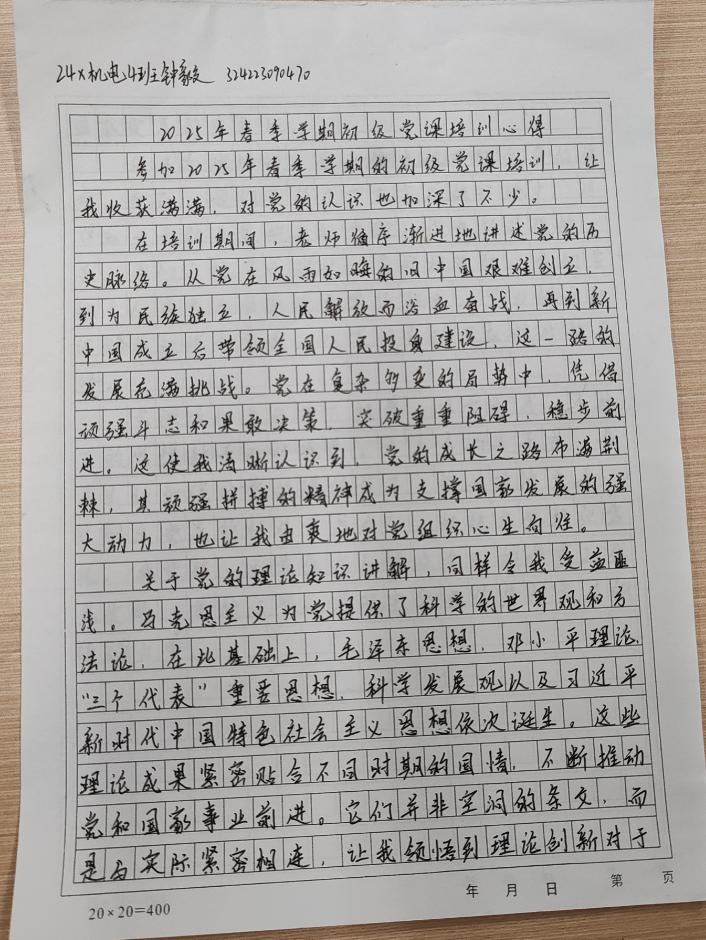 24X机电4班钟毅 324223090470
2025年春季学期初级党课培训心得
参加2025年春季学期的初级党课培训，让
我收获满满，对党的认识也加深了不少。
在培训期间，老师循序渐进地讲述党的历
史脉络。从党在风雨如晦的旧中国艰难创立，
到为民族独立，人民解放而浴血奋战，再到新
中国成立后带领全国人民投身建设，这一路的
发展充满挑战。党在复杂多变的局势中，凭借
顽强斗志和果敢决策，突破重重阻碍，稳步前
进。这使我清晰认识到，党的成长之路布满荆
棘，其顽强拼搏的精神成为支撑国家发展的强
大动力，也让我由衷地对党组织心生向往。
关于党的理论知识讲解，同样令我受益匪
浅。马克思主义为党提供了科学的世界观和方
法论，在此基础上，毛泽东思想，邓小平理论，
“三个代表”重要思想，科学发展观以及习近平
新时代中国特色社会主义思想依次诞生。这些
理论成果紧密贴合不同时期的国情，不断推动
党和国家事业前进。它们并非空洞的条文，而
是与实际紧密相连，让我领悟到理论创新对于
年 月 日 第 页
20×20=400